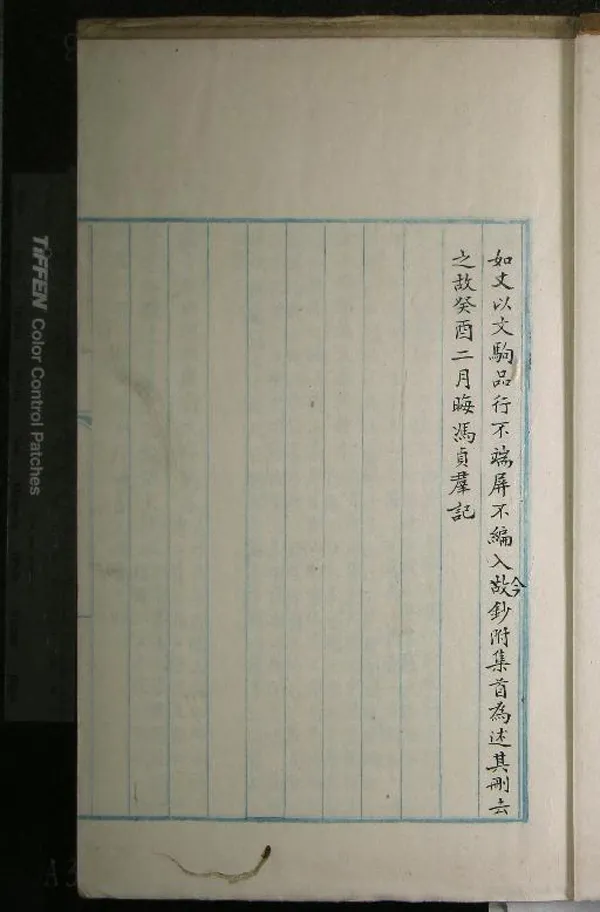 如丈以文駒品行不端屏不編入故今鈔附集首為述其刪去
之故癸酉二月晦馮貞羣記
TIFFEN Color Control Patches